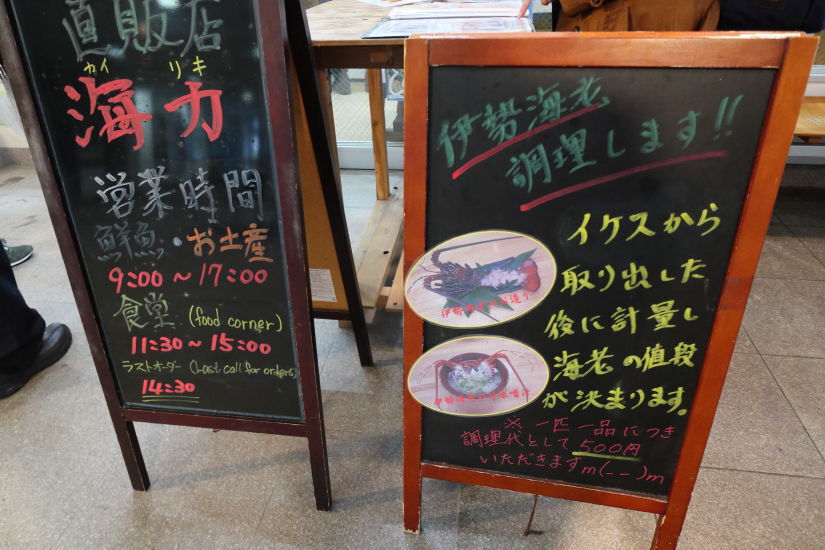 直販店
カイ リキ
海力
営業時間
鮮魚・お土産
9:00～17:00
食堂 (food corner)
11:30～15:00
ラストオーダー (Last call for orders)
14:30
伊勢海老
調理します!!
イケスから
取り出した
後に計量し
海老の値段
が決まります。
※一匹一品につき
調理代として500円
いただきますm(--)m